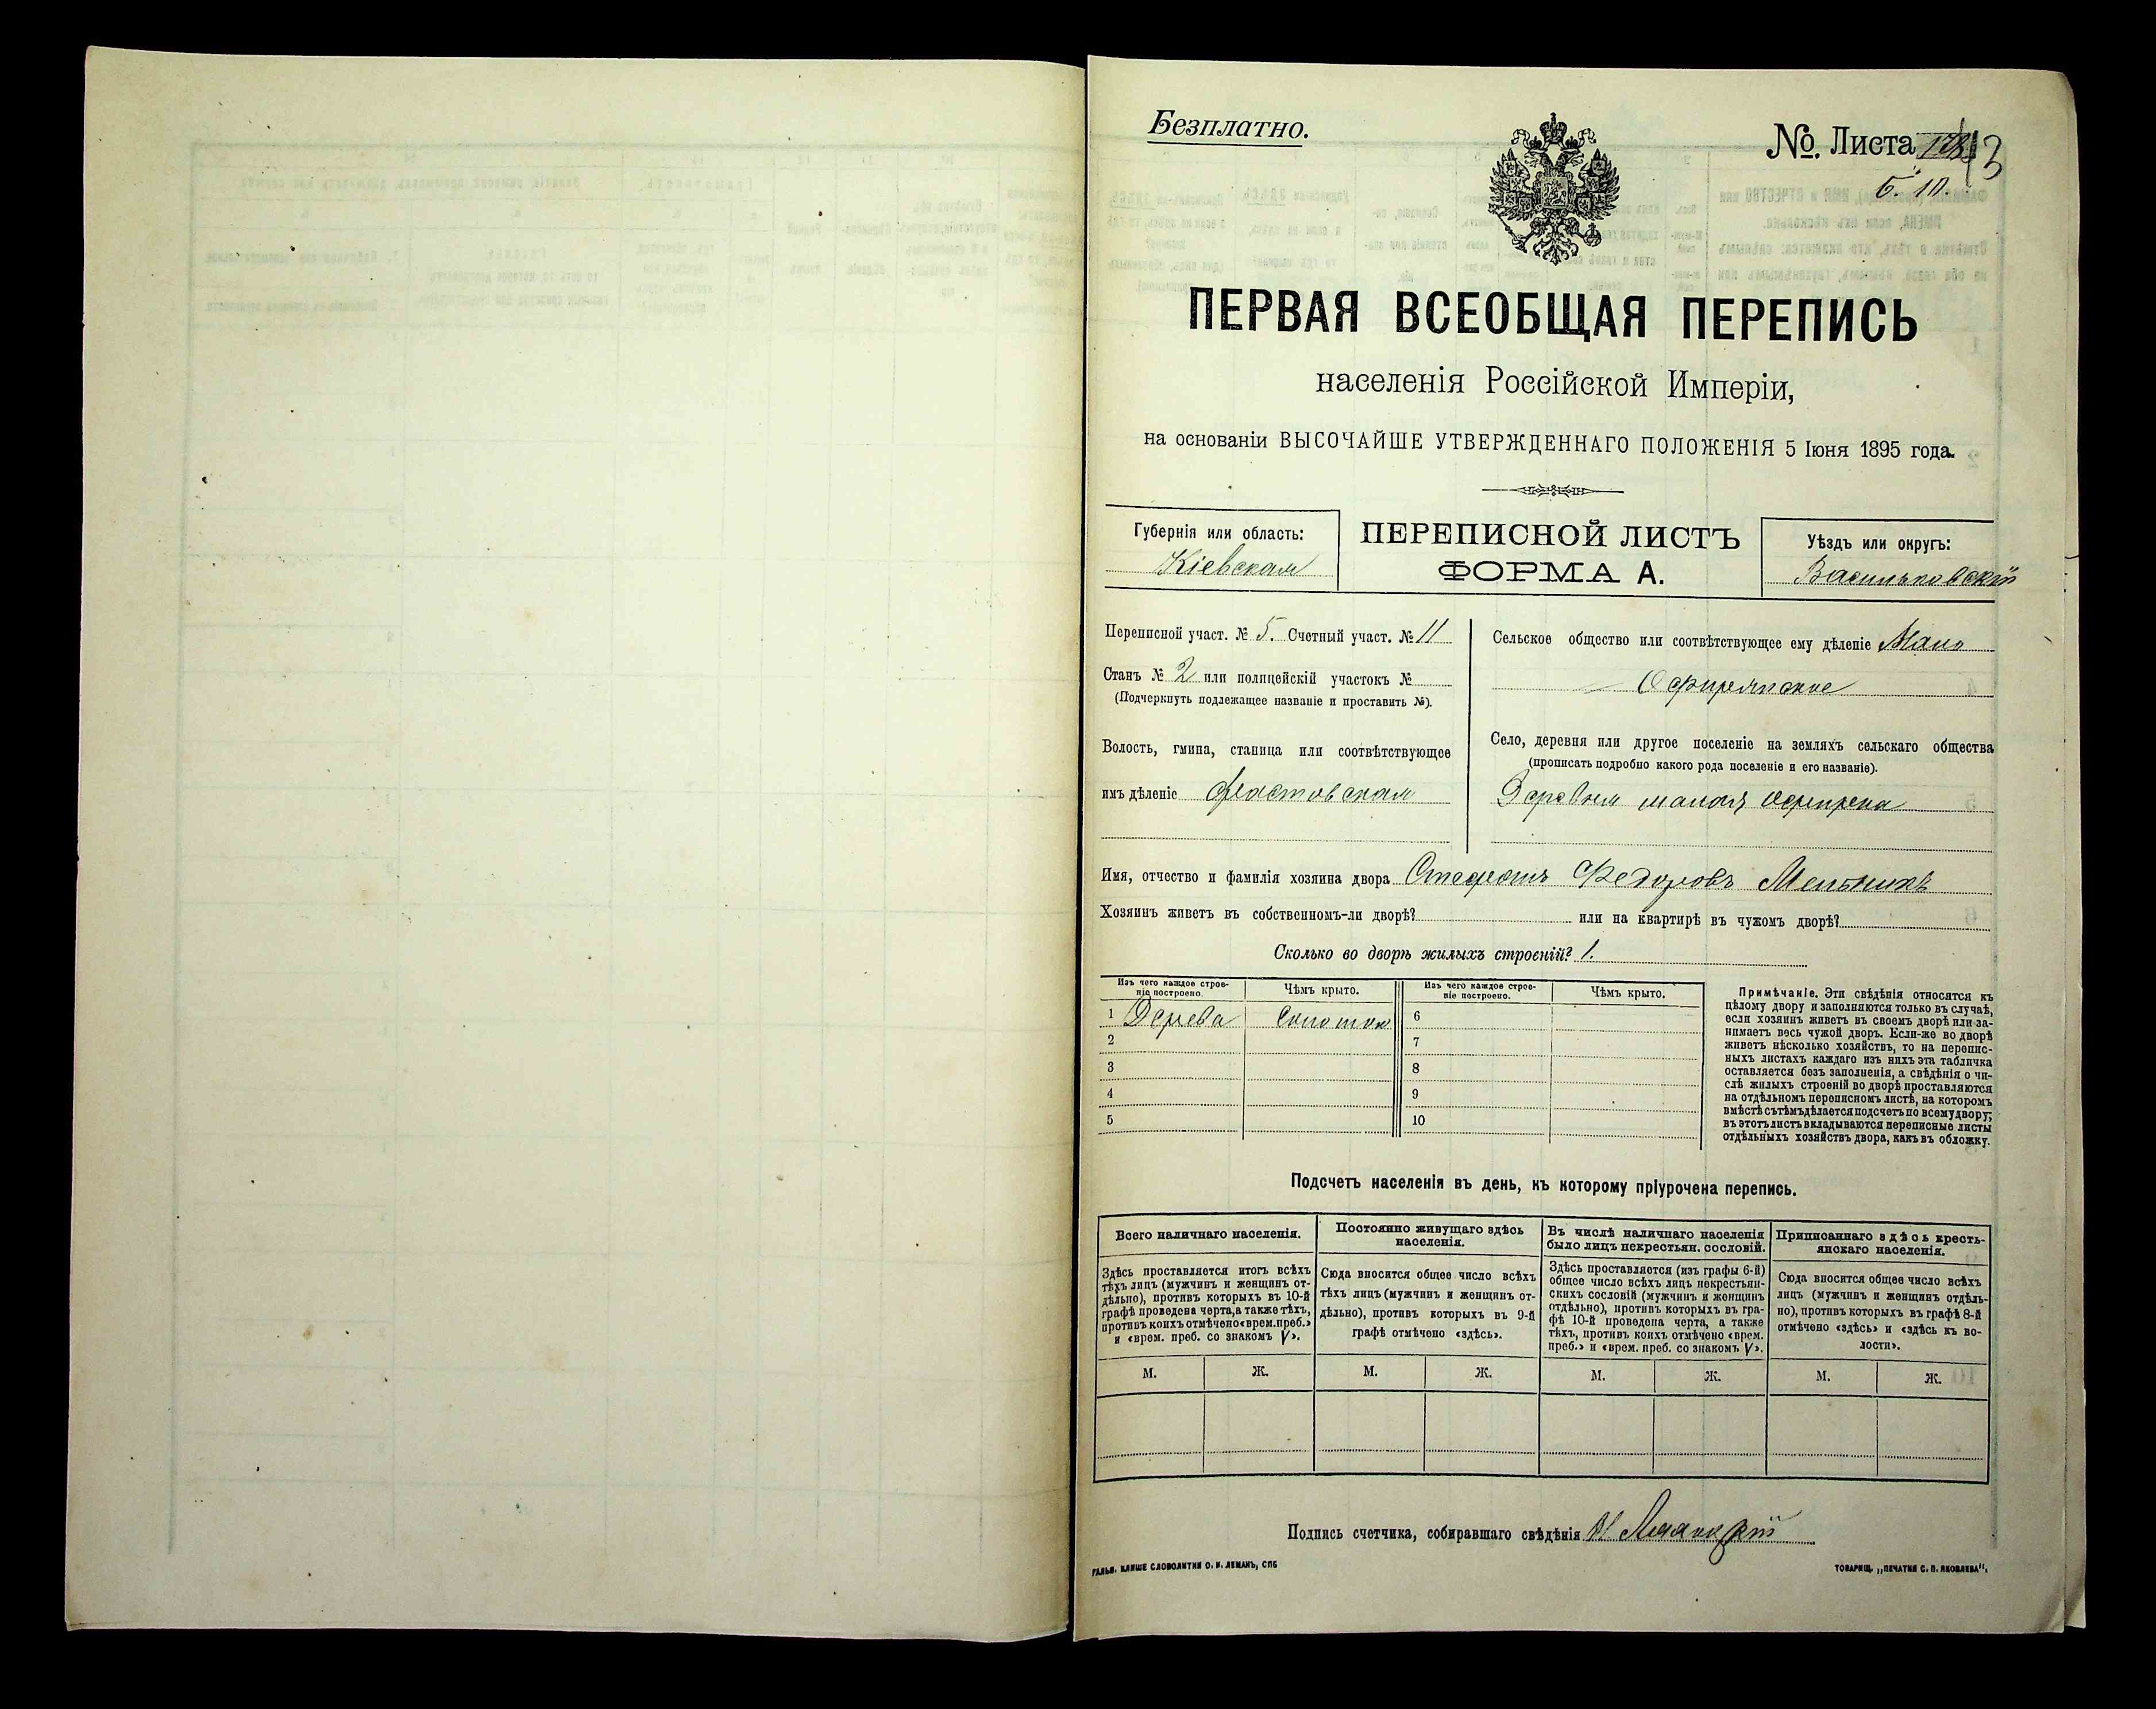 Безплатно.
№ Листа 13
Б. 10.
ПЕРВАЯ ВСЕОБЩАЯ ПЕРЕПИСЬ
населенія Россійской Имперіи,
на основаніи ВЫСОЧАЙШЕ УТВЕРЖДЕННАГО ПОЛОЖЕНІЯ 5 Іюня 1895 года.
Губернія или область:
Кіевская
ПЕРЕПИСНОЙ ЛИСТЪ
ФОРМА А.
Уѣздъ или округъ:
Васильковскій
Переписной участ. № 5. Счетный участ. № 11
Станъ № 2 или полицейскій участокъ №
(Подчеркнуть подлежащее названіе и проставить №).
Волость, гмина, станица или соотвѣтствующее
имъ дѣленіе Фастовская
Сельское общество или соотвѣтствующее ему дѣленіе Мало
Офирянское
Село, деревня или другое поселеніе на земляхъ сельскаго общества
(прописать подробно какого рода поселеніе и его названіе).
Деревня малая Офирна
Имя, отчество и фамилія хозяина двора Стефанъ Федоровъ Мельникъ
Хозяинъ живетъ въ собственномъ-ли дворѣ? или на квартирѣ въ чужомъ дворѣ?
Сколько во дворѣ жилыхъ строеній? 1.
Изъ чего каждое строе-
ніе построено.
Чѣмъ крыто.
Изъ чего каждое строе-
ніе построено.
Чѣмъ крыто.
1 Дерева Соломою 6
2 7
3 8
4 9
5 10
Примѣчаніе. Эти свѣдѣнія относятся къ
цѣлому двору и заполняются только въ случаѣ,
если хозяинъ живетъ въ своемъ дворѣ или за-
нимаетъ весь чужой дворъ. Если-же во дворѣ
живетъ нѣсколько хозяйствъ, то на перепис-
ныхъ листахъ каждаго изъ нихъ эта табличка
оставляется безъ заполненія, а свѣдѣнія о чи-
слѣ жилыхъ строеній во дворѣ проставляются
на отдѣльномъ переписномъ листѣ, на которомъ
вмѣстѣ съ тѣмъ дѣлается подсчетъ по всему двору;
въ этотъ листъ вкладываются переписные листы
отдѣльныхъ хозяйствъ двора, какъ въ обложку.
Подсчетъ населенія въ день, къ которому пріурочена перепись.
Всего наличнаго населенія.
Здѣсь проставляется итогъ всѣхъ
тѣхъ лицъ (мужчинъ и женщинъ от-
дѣльно), противъ которыхъ въ 10-й
графѣ проведена черта, а также тѣхъ,
противъ коихъ отмѣчено «врем. преб.»
и «врем. преб. со знакомъ V».
М. Ж.
Постоянно живущаго здѣсь
населенія.
Сюда вносится общее число всѣхъ
тѣхъ лицъ (мужчинъ и женщинъ от-
дѣльно), противъ которыхъ въ 9-й
графѣ отмѣчено «здѣсь».
М. Ж.
Въ числѣ наличнаго населенія
было лицъ некрестьян. сословій.
Здѣсь проставляется (изъ графы 6-й)
общее число всѣхъ лицъ некрестьян-
скихъ сословій (мужчинъ и женщинъ
отдѣльно), противъ которыхъ въ гра-
фѣ 10-й проведена черта, а также
тѣхъ, противъ коихъ отмѣчено «врем.
преб.» и «врем. преб. со знакомъ V».
М. Ж.
Приписаннаго здѣсь кресть-
янскаго населенія.
Сюда вносится общее число всѣхъ
лицъ (мужчинъ и женщинъ отдѣль-
но), противъ которыхъ въ графѣ 8-й
отмѣчено «здѣсь» и «здѣсь къ во-
лости».
М. Ж.
Подпись счетчика, собиравшаго свѣдѣнія
ГАЛЬВ. КЛИШЕ СЛОВОЛИТНИ О. И. ЛЕМАНЪ, СПБ
ТОВАРИЩ. „ПЕЧАТНЯ С. П. ЯКОВЛЕВА“.